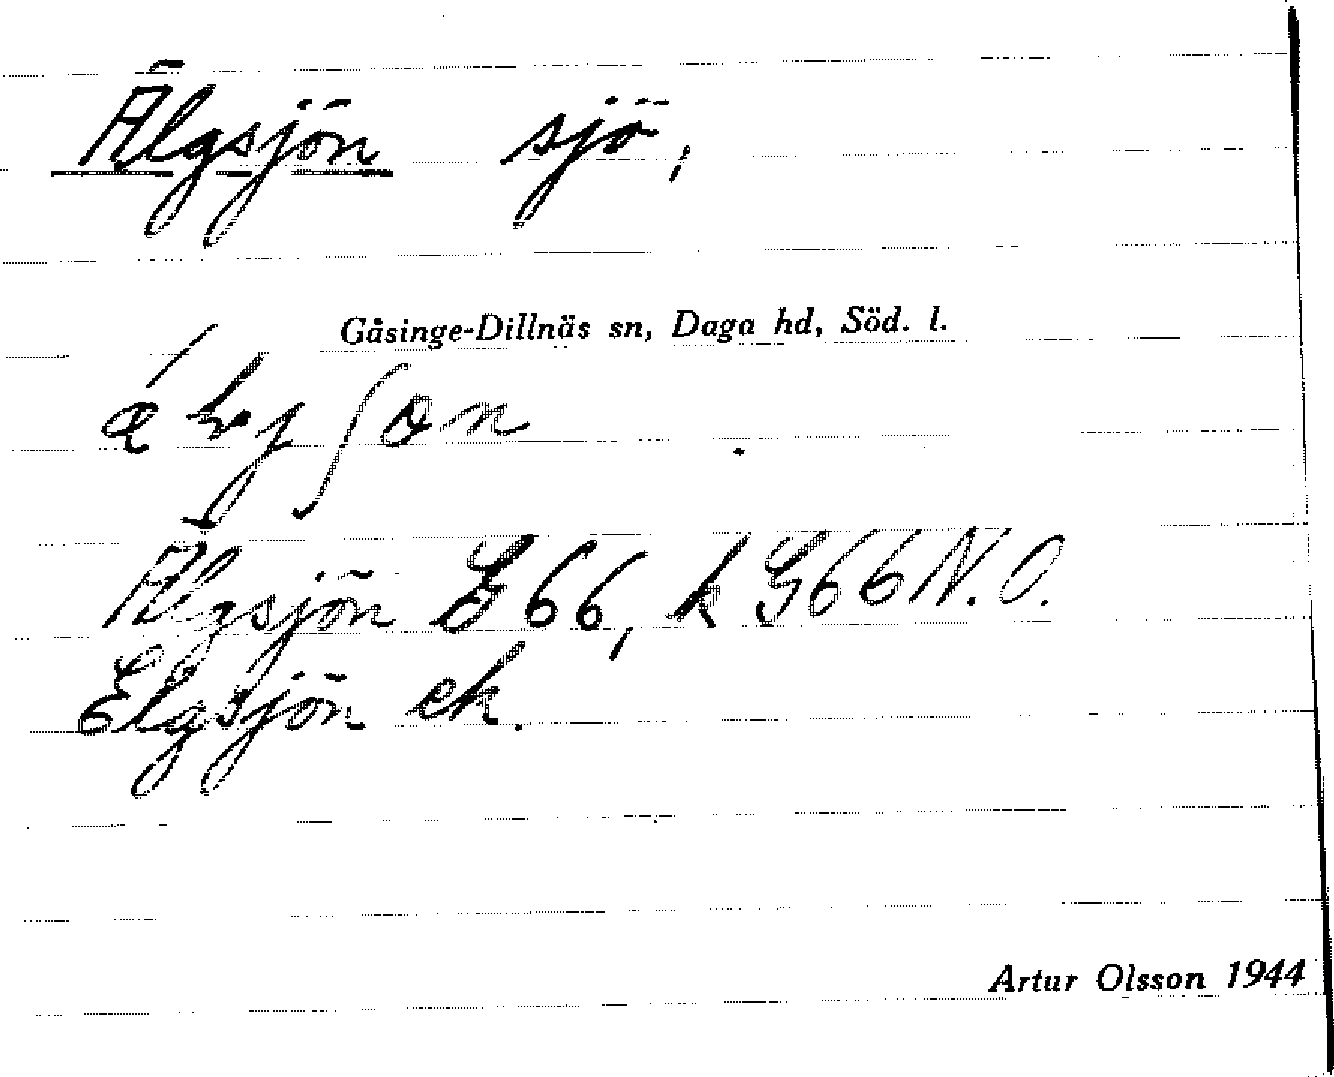 Älgsjön sjö,
Gåsinge-Dillnäs sn, Daga hd, Söd. l.
Älgsjön G 66, k G66 N.O.
Elgsjön ek.
Artur Olsson 1944